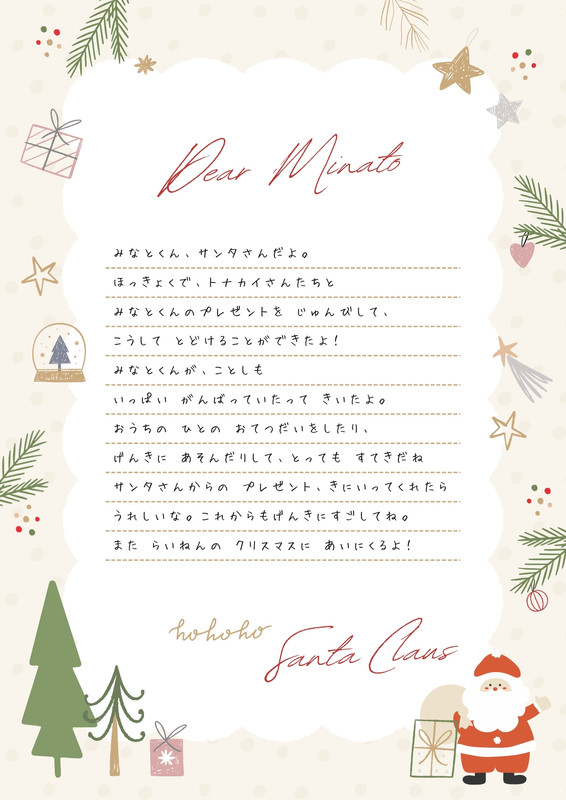 Dear Minato
みなとくん、サンタさんだよ。
ほっきょくで、トナカイさんたちと
みなとくんのプレゼントを じゅんびして、
こうして とどけることができたよ！
みなとくんが、ことしも
いっぱい がんばっていたって きいたよ。
おうちの ひとの おてつだいをしたり、
げんきに あそんだりして、とっても すてきだね
サンタさんからの プレゼント、きにいってくれたら
うれしいな。これからもげんきにすごしてね。
また らいねんの クリスマスに あいにくるよ！
hohoho
Santa Claus